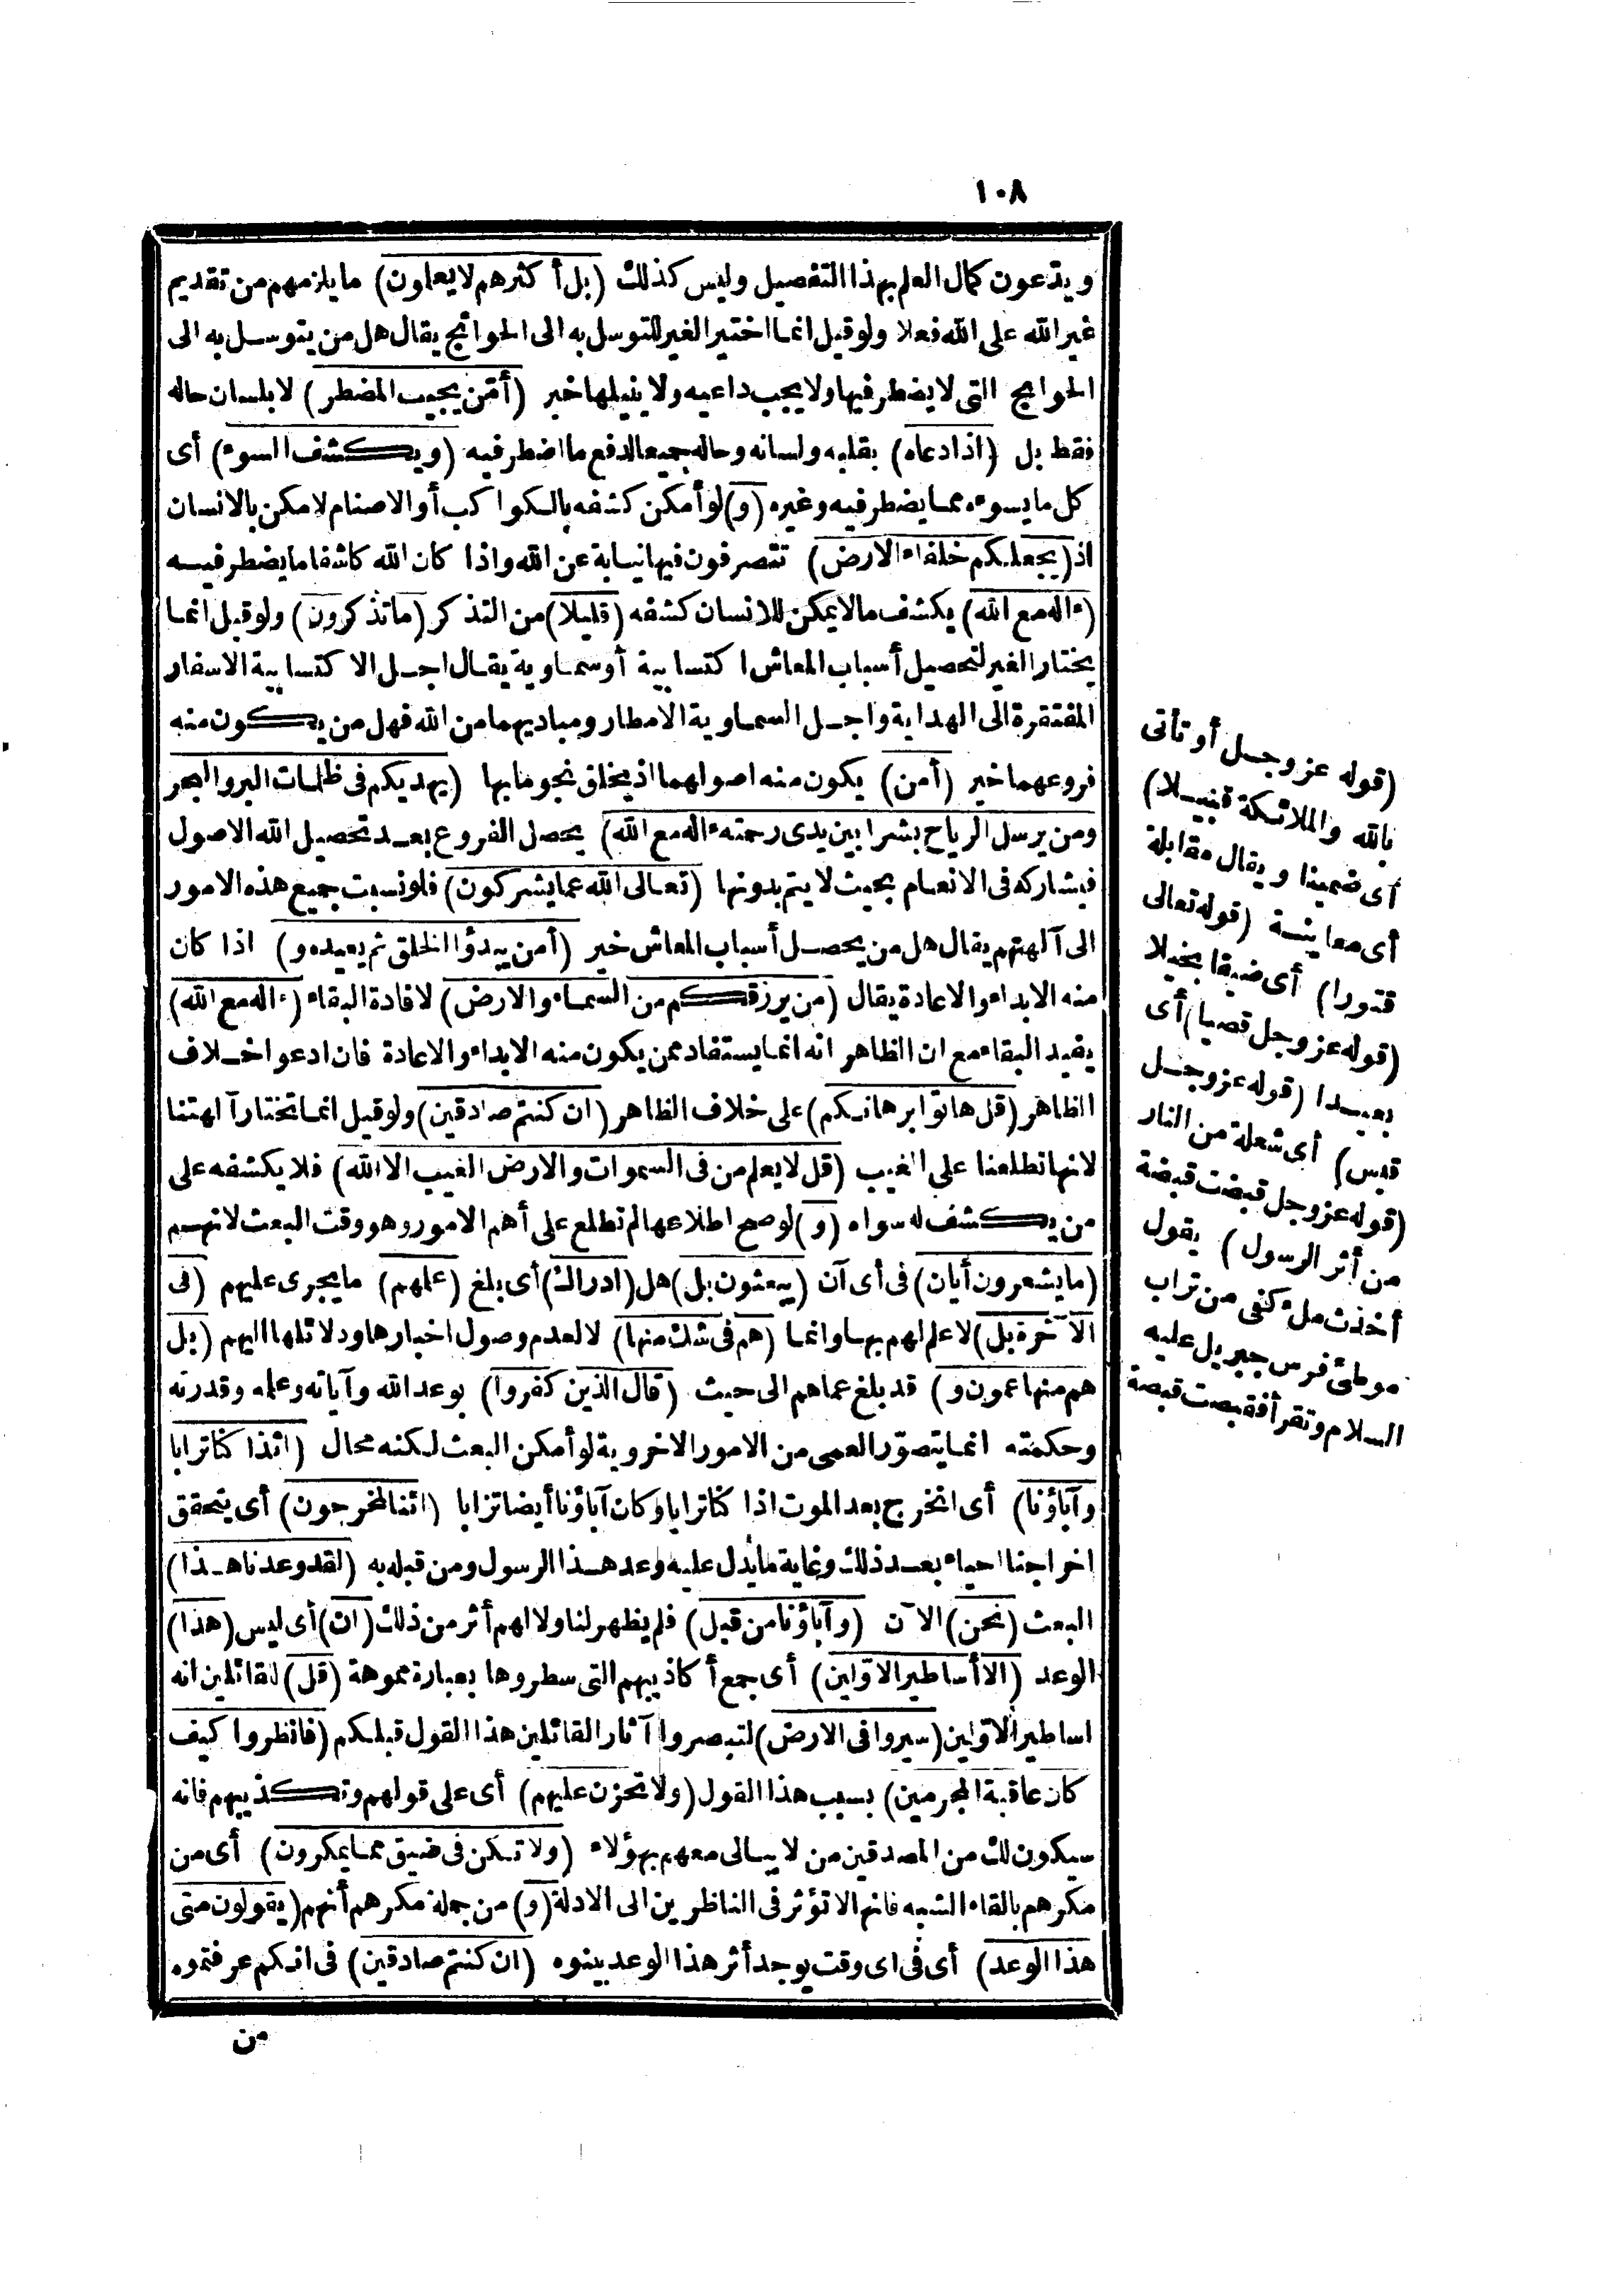 ١٠٨
ويدّعون كمال العلم بهذا التفصيل وليس كذلك (بل أكثرهم لا يعلمون) ما يلزمهم من تقديم
غير الله على الله فعلا ولو قيل انما اختير الغير للتوسل به الى الحوائج يقال هل من يتوسل به الى
الحوائج التى لا يضطر فيها ولا يجب داعيه ولا ينيلها خير (أمّن يجيب المضطر) لا بلسان حاله
فقط بل (اذا دعاه) بقلبه ولسانه وحاله جميعا لدفع ما اضطر فيه (ويكشف السوء) أى
كل ما يسوءه مما يضطر فيه وغيره (و) لو أمكن كشفه بالكواكب أو الاصنام لامكن بالانسان
اذ (يجعلكم خلفاء الارض) تتصرفون فيها نيابة عن الله واذا كان الله كاشفا ما يضطر فيه
(ءاله مع الله) يكشف ما لا يمكن للانسان كشفه (قليلا) من التذكر (ما تذكرون) ولو قيل انما
يختار الغير لتحصيل أسباب المعاش اكتسابية أو سماوية يقال اجل الاكتسابية الاسفار
المفتقرة الى الهداية واجل السماوية الامطار ومباديهما من الله فهل من يكون منه
فروعهما خير (أمن) يكون منه اصولهما اذ يخلق نجوما بها (يهديكم فى ظلمات البر والبحر
ومن يرسل الرياح بشرا بين يدى رحمته ءاله مع الله) يحصل الفروع بعد تحصيل الله الاصول
فيشاركه فى الانعام بحيث لا يتم بدونها (تعالى الله عما يشركون) فلو نسبت جميع هذه الامور
الى آلهتهم يقال هل من يحصل أسباب المعاش خير (أمن يبدؤا الخلق ثم يعيده و) اذا كان
منه الابداء والاعادة يقال (من يرزقكم من السماء والارض) لافادة البقاء (ءاله مع الله)
يفيد البقاء مع ان الظاهر انه انما يستفاد ممن يكون منه الابداء والاعادة فان ادعوا خلاف
الظاهر (قل هاتوا برهانكم) على خلاف الظاهر (ان كنتم صادقين) ولو قيل انما تختار آلهتنا
لانها تطلعنا على الغيب (قل لا يعلم من فى السموات والارض الغيب الا الله) فلا يكشفه على
من يكشف له سواه (و) لو صح اطلاعها لم تطلع على أهم الامور وهو وقت البعث لانهم
(ما يشعرون أيان) فى أى آن (يبعثون بل) هل (ادراك) أى بلغ (علمهم) ما يجرى عليهم (فى
الآخرة بل) لا علم لهم بها وانما (هم فى شك منها) لا لعدم وصول اخبارها ودلائلها اليهم (بل
هم منها عمون و) قد بلغ عماهم الى حيث (قال الذين كفروا) بوعد الله وآياته وعلمه وقدرته
وحكمته انما يتصوّر العمى من الامور الاخروية لو أمكن البعث لكنه محال (ائذا كنا ترابا
وآباؤنا) أى انخرج بعد الموت اذا كنا ترابا وكان آباؤنا أيضا ترابا (ائنا لمخرجون) أى يتحقق
اخراجنا احياء بعد ذلك وغاية ما يدل عليه وعد هذا الرسول ومن قبله به (لقد وعدنا هذا)
البعث (نحن) الآن (وآباؤنا من قبل) فلم يظهر لنا ولا لهم أثر من ذلك (ان) أى ليس (هذا)
الوعد (الا أساطير الاوّلين) أى جمع أكاذيبهم التى سطروها بعبارة مموهة (قل) للقائلين انه
اساطير الاوّلين (سيروا فى الارض) لتبصروا آثار القائلين هذا القول قبلكم (فانظروا كيف
كان عاقبة المجرمين) بسبب هذا القول (ولا تحزن عليهم) أى على قولهم وتكذيبهم فانه
سيكون لك من المصدقين من لا يبالى معهم بهؤلاء (ولا تكن فى ضيق مما يمكرون) أى من
مكرهم بالقاء الشبه فانها لا تؤثر فى الناظرين الى الادلة (و) من جملة مكرهم أنهم (يقولون متى
هذا الوعد) أى فى اى وقت يوجد أثر هذا الوعد بينوه (ان كنتم صادقين) فى انكم عرفتموه
من
(قوله عز وجل أو تأتى
بالله والملائكة قبيلا)
أى ضمينا ويقال مقابلة
أى معاينة (قوله تعالى
قتورا) أى ضيقا بخيلا
(قوله عز وجل قصيا) أى
بعيدا (قوله عز وجل
قبس) أى شعلة من النار
(قوله عز وجل قبضت قبضة
من أثر الرسول) يقول
أخذت ملء كفى من تراب
موطئ فرس جبريل عليه
السلام وتقرأ فقبصت قبصة